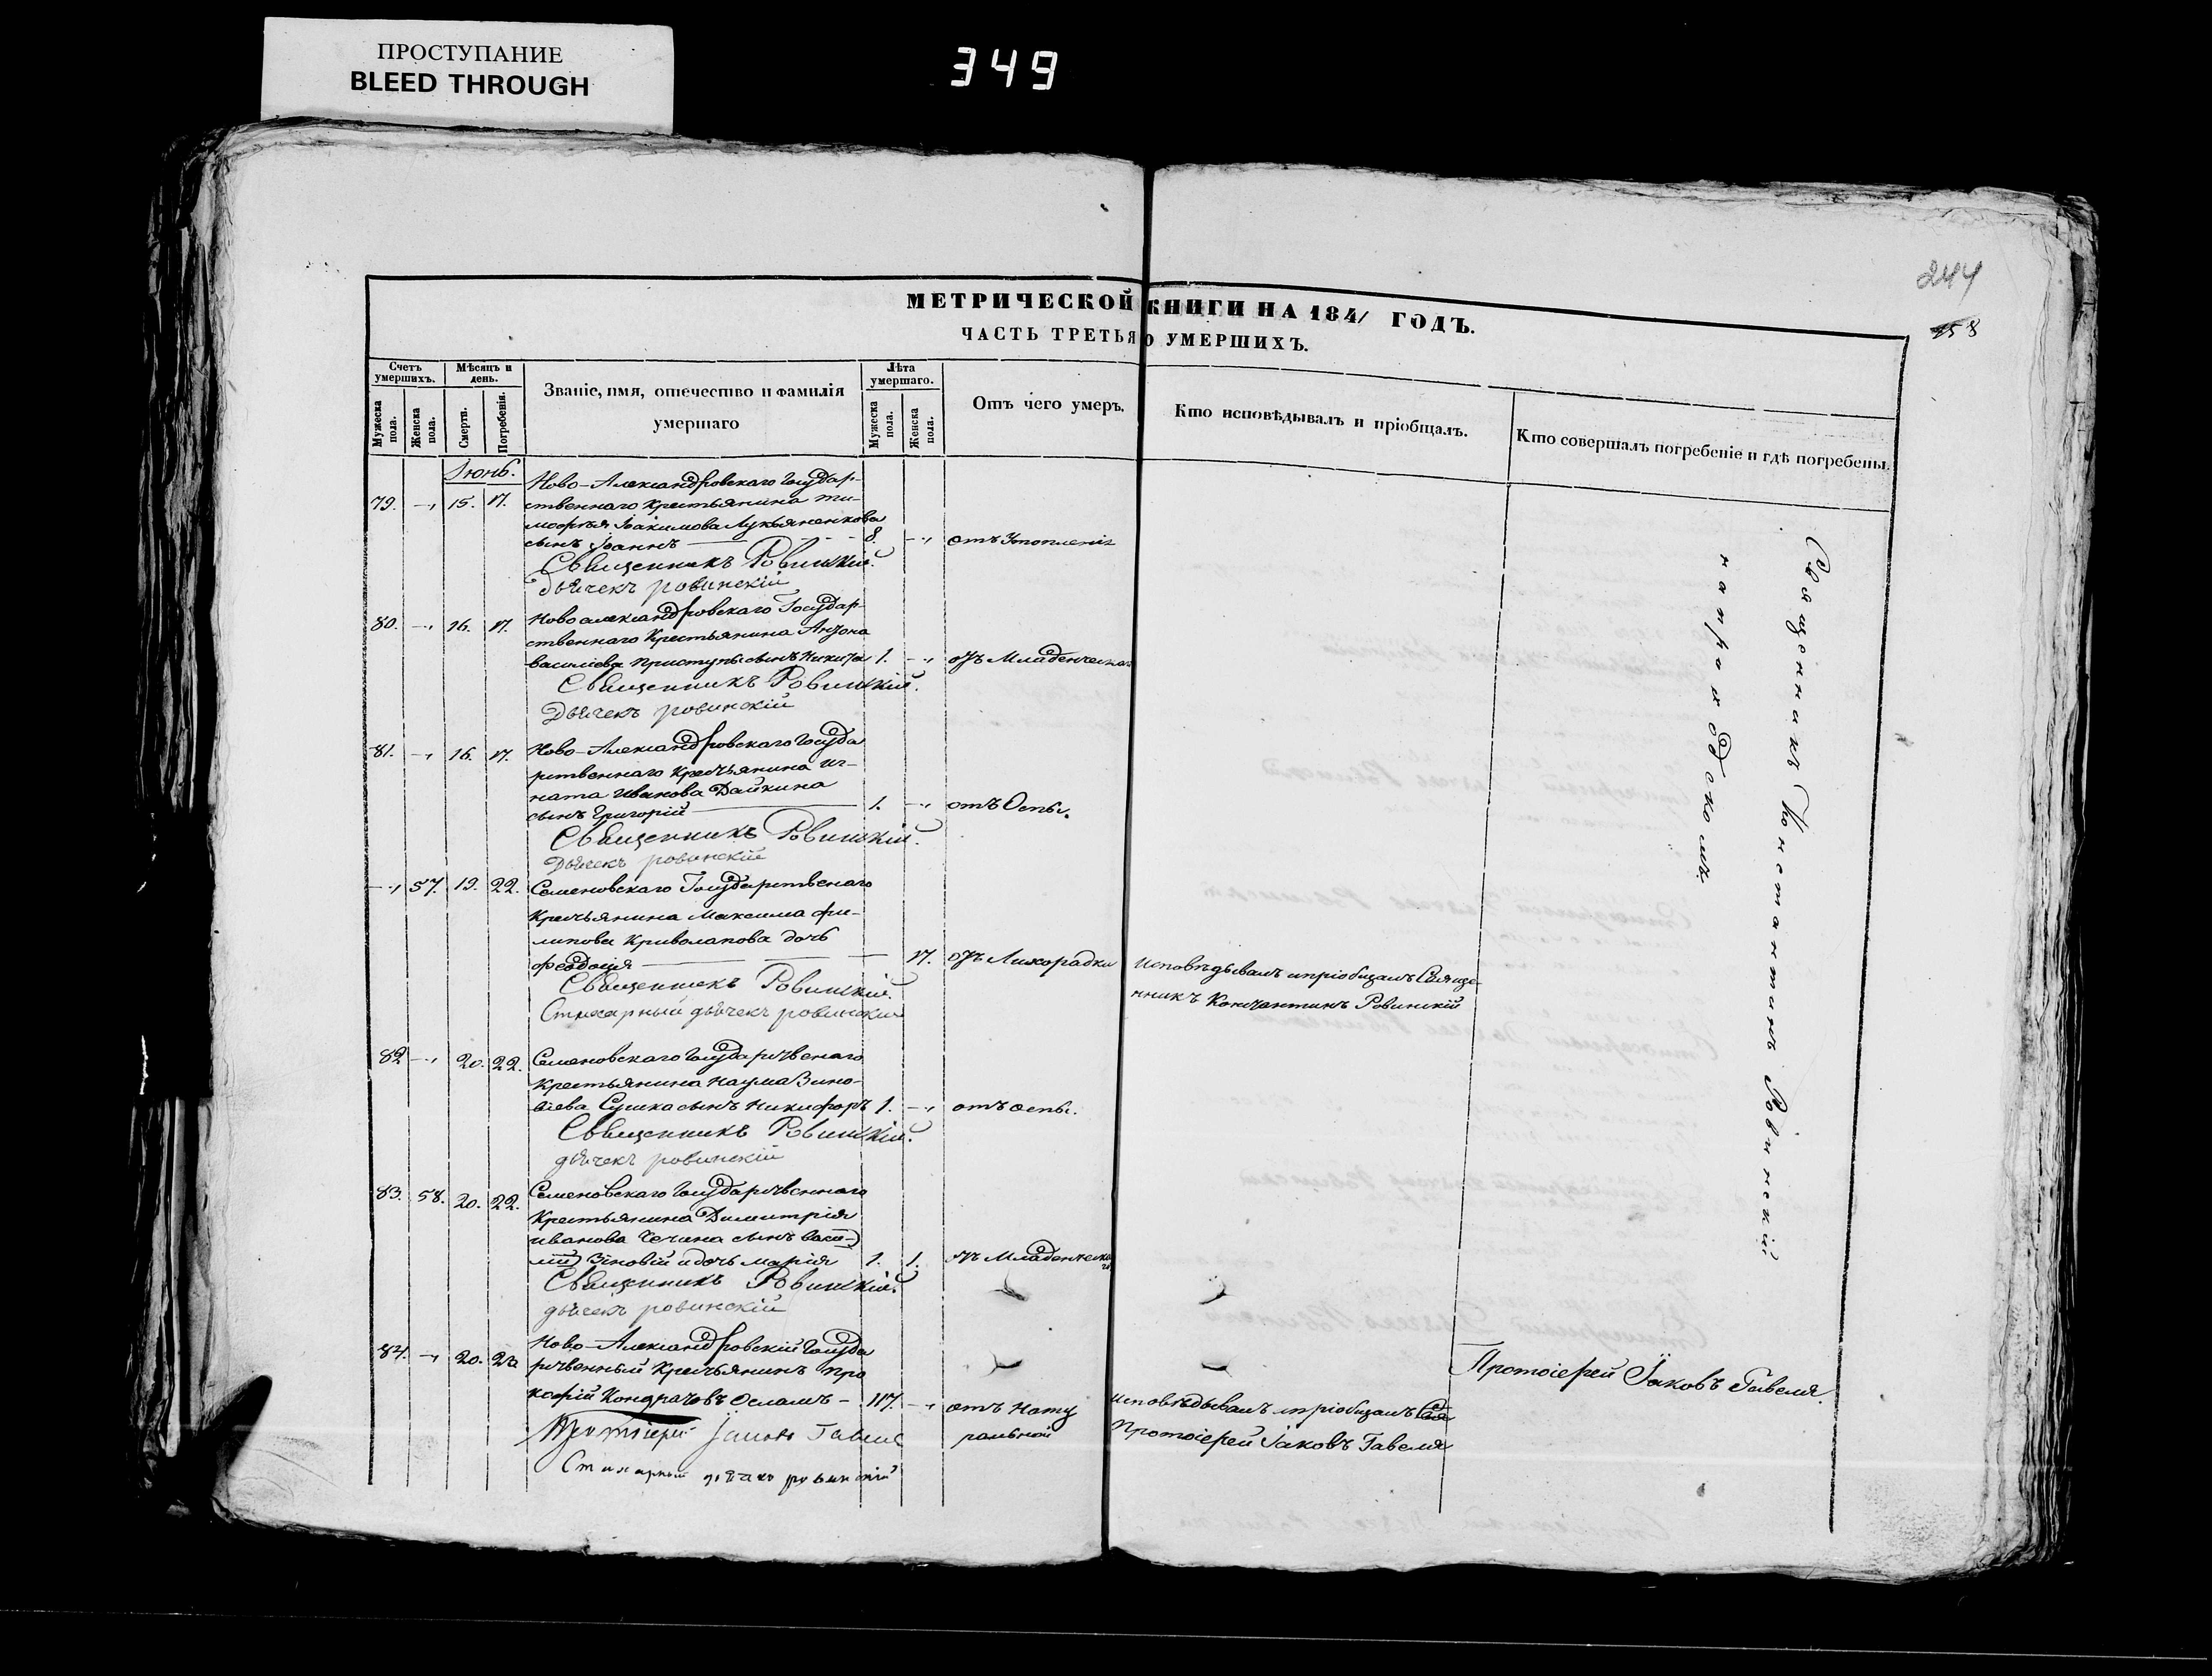 ПРОСТУПАНИЕ
BLEED THROUGH
349
244
158
МЕТРИЧЕСКОЙ КНИГИ НА 1841 ГОДЪ.
ЧАСТЬ ТРЕТЬЯ О УМЕРШИХЪ.
Счетъ умершихъ.
Мужеска пола.
Женска пола.
Мѣсяцъ и день.
Смерти.
Погребенія.
Званіе, имя, отечество и фамилія
умершаго
Лѣта умершаго.
Мужеска пола.
Женска пола.
Отъ чего умеръ.
Кто исповѣдывалъ и пріобщалъ.
Кто совершалъ погребеніе и гдѣ погребены.
Іюнь.
Ново-Александровскаго Государ-
79. -„ 15. 17. ственнаго Крестьянина Ти-
мофѣя Іоакимова Лукьяненкова
сынъ Іоаннъ 8. -„ отъ Утопленія
Священникъ Ровинскій.
Дьячекъ ровинскій
80. -„ 16. 17. Новоалександровскаго Государ-
ственнаго Крестьянина Антона
Василіева Приступы сынъ Никита 1. -„ отъ Младенческой
Священникъ Ровинскій.
Дьячекъ ровинскій
81. -„ 16. 17. Ново-Александровскаго Госуда
рственнаго Крестьянина Иг-
ната Иванова Дайкина
сынъ Григорій 1. -„ отъ Оспы.
Священникъ Ровинскій.
Дьячекъ ровинскій
-„ 57. 19. 22. Семеновскаго Государственаго
Крестьянина Максима Фи-
липова Криволапова дочь
Феодосія — 17. отъ Лихорадки Исповѣдывалъ и пріобщалъ Свяще-
нникъ Константинъ Ровинскій
Священникъ Ровинскій.
Стихарный дьячекъ ровинскій
82 -„ 20. 22. Семеновскаго Государственаго
Крестьянина Наума Зино-
віева Сушка сынъ Никифоръ 1. -„ отъ оспы.
Священникъ Ровинскій.
дьячекъ ровинскій
83. 58. 20. 22. Семеновскаго Государственнаго
Крестьянина Димитрія
Иванова Чечина сынъ Васи-
лій Зіновій и дочь Марія 1. 1. отъ Младенческой
Священникъ Ровинскій.
дьячекъ ровинскій
84. -„ 20. 22 Ново-Александровскій Госуда
рственный Крестьянинъ Про
кофій Кондратовъ Ослам
ъ - 117. -„ отъ Нату
ральной
Исповѣдывалъ и пріобщалъ
Протоіерей Іаковъ Гавеля
Протоіерей Іаковъ Гавеля
Стихарный дьячекъ ровинскій
Протоіерей Іаковъ Гавеля.
Священникъ Константинъ Ровинскій
на приходскомъ.